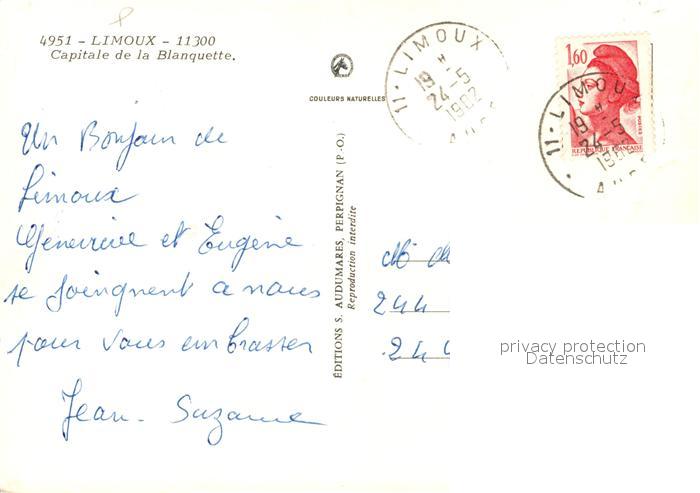 4951 - LIMOUX - 11300
Capitale de la Blanquette.
COULEURS NATURELLES
ÉDITIONS S. AUDUMARES, PERPIGNAN (P.-O.)
Reproduction interdite
11 · LIMOUX
19 H
24-5
1982
AUDE
1,60
POSTES
REPUBLIQUE FRANÇAISE
11 · LIMOU
19 H
24-5
1982
Un Bonjour de
Limoux
Geneviève et Eugène
se joingnent a nous
pour vous embrasser
Jean - Suzanne
244
privacy protection
Datenschutz